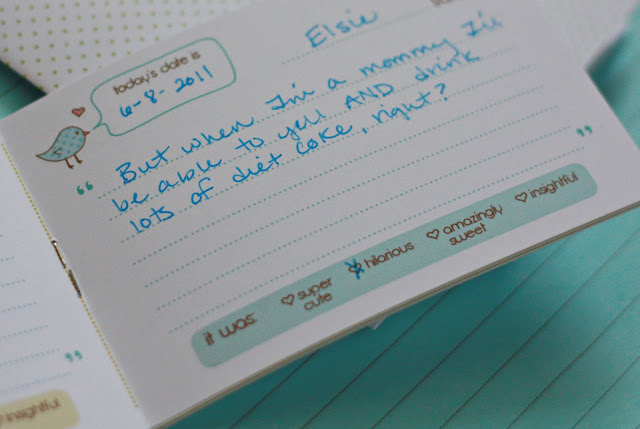 Elsie
today's date is
6-8-2011
“
But when I'm a mommy I'll
be able to yell AND drink
lots of diet coke, right?
”
it was:
super cute
hilarious
amazingly sweet
insightful
”
insightful